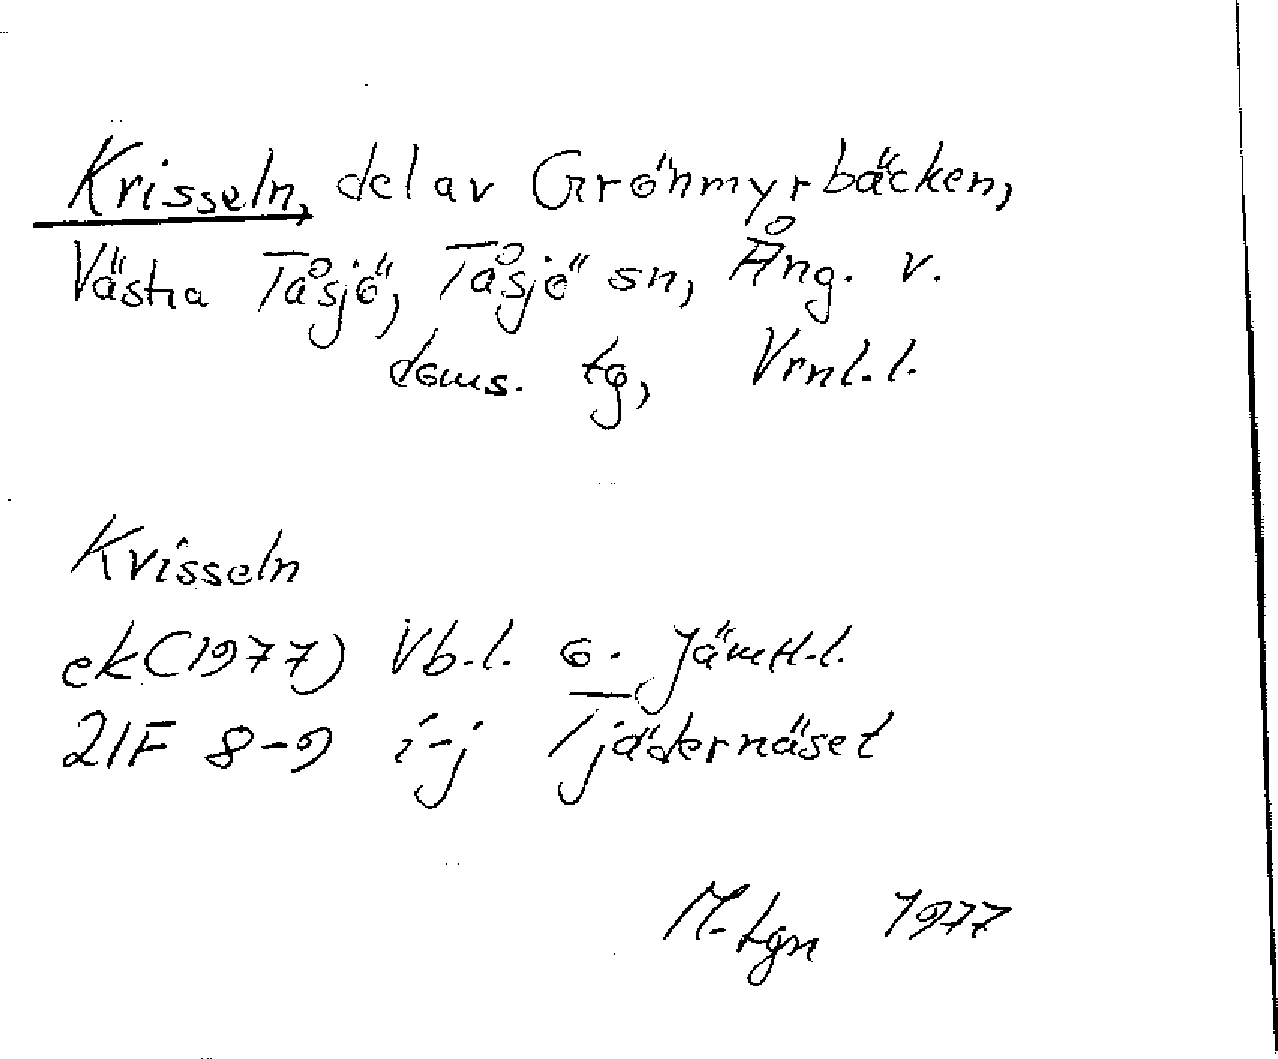 Krisseln, del av Grönmyrbäcken,
Västra Tåsjö, Tåsjö sn, Ång. v.
doms. tg, Vrnl.l.
Kvisseln
ek(1977) Vb.l. o. Jämtl.l.
21F 8-9 i-j Tjädernäset
M-tgn 1977